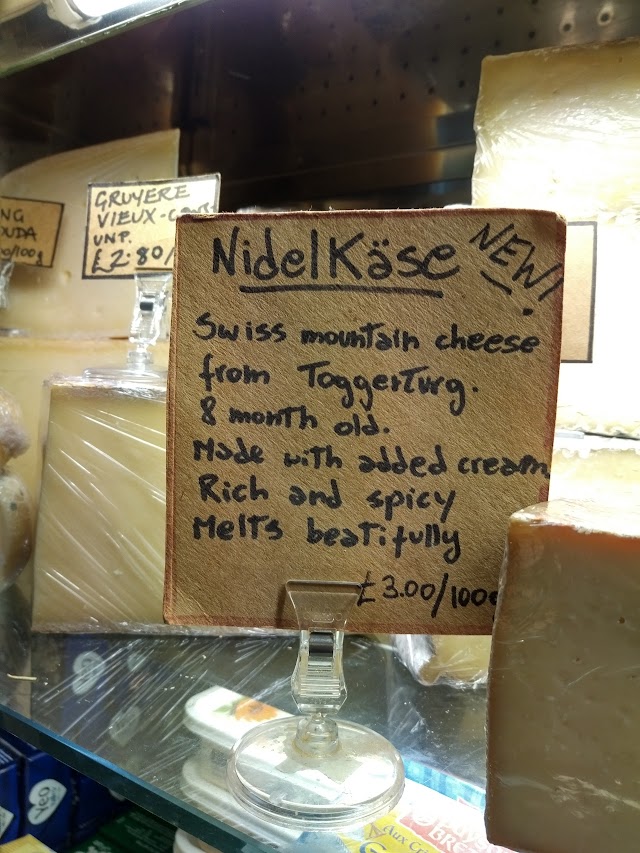 NG
OUDA
00/100g
GRUYERE
VIEUX-
UNP.
£2.80/
NidelKäse
NEW!
Swiss mountain cheese
from Toggerturg.
8 month old.
Made with added cream
Rich and spicy
Melts beatifully
£3.00/100g
Yeo
AUX CR